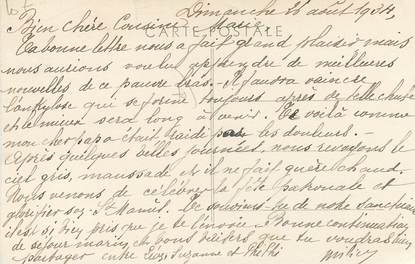 Dimanche 26 août 1934,
Bien chère Cousine Marie
CARTE POSTALE
Ta bonne lettre nous a fait grand plaisir mais
nous aurions voulu apprendre de meilleures
nouvelles de ce pauvre bras. Il faudra vaincre
l'ankylose qui se forme toujours après de telle chute
et le mieux sera long à venir. Te voilà comme
mon cher papa était raidi par les douleurs.
Après quelques belles journées, nous revoyons le
ciel gris, maussade et il ne fait guère chaud.
Nous venons de célébrer la fête patronale et
glorifier St
Te souviens-tu de notre sanctuaire
il est si près que je te l'envoie. Bonne continuation
de séjour marin, et bons baisers que tu voudras bien
partager entre Suzanne et